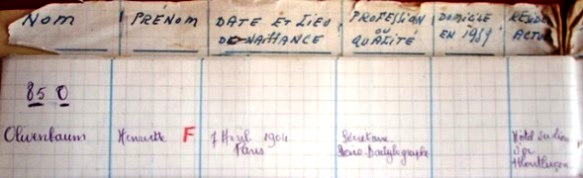 NOM
PRÉNOM
DATE ET LIEU
DE NAISSANCE
PROFESSION
OU
QUALITÉ
DOMICILE
EN 1939
RÉSID
ACTU
850
Olivenbaum
Henriette F
7 Avril 1904
Paris
Secrétaire
Sténo-Dactylographe
Hotel du Lion
d'or
Montluçon